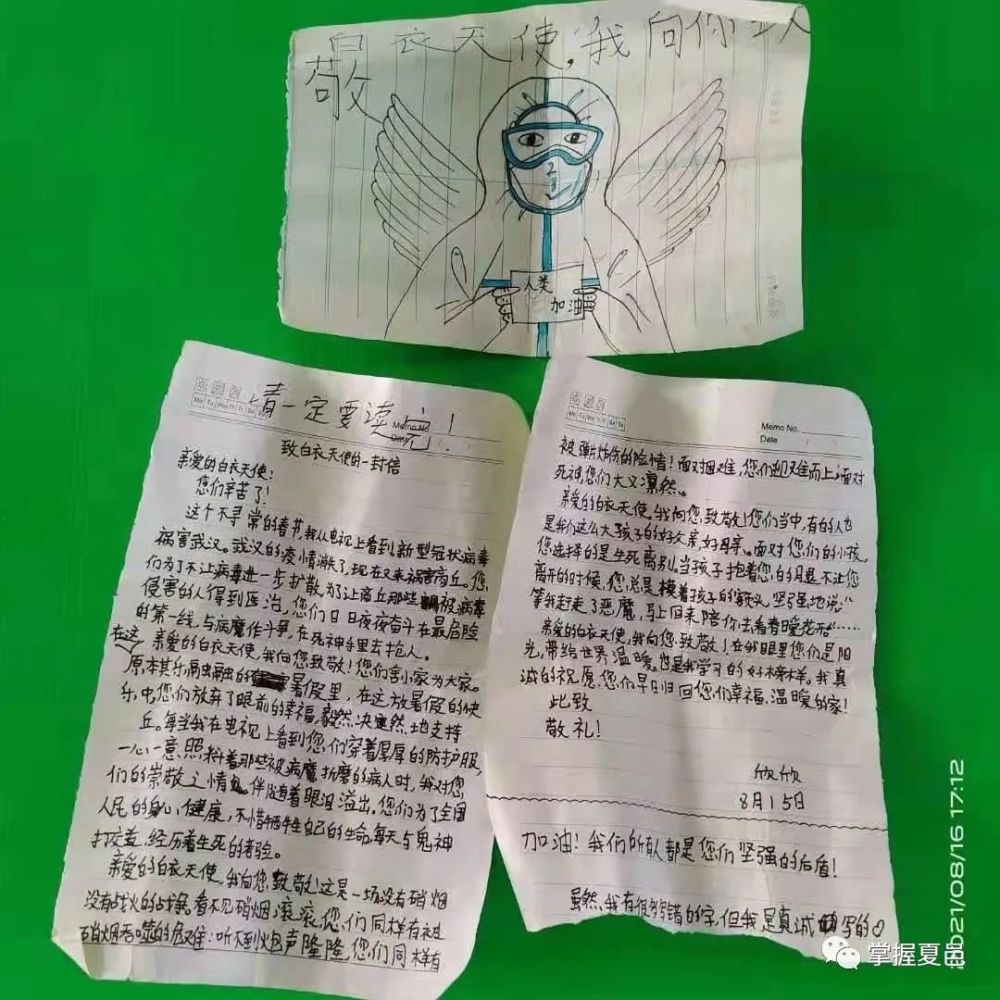 白衣天使,我向你致
敬
人类
加油
请一定要读完!
Memo No.
Mo Tu We Th Fr Sa Su
Date
致白衣天使的一封信
亲爱的白衣天使:
您们辛苦了!
这个不寻常的春节,我从电视上看到新型冠状病毒
祸害武汉。武汉的疫情消灭了,现在又来祸害商丘。您
们为了不让病毒进一步扩散,为了让商丘那些被病毒
侵害的人得到医治,您们日日夜夜奋斗在最危险
的第一线,与病魔作斗争,在死神手里去抢人。
亲爱的白衣天使,我向您致敬!您们舍小家为大家。
在这
原本其乐融融的暑假里,在这放暑假的快
乐中,您们放弃了眼前的幸福,毅然决然地支持
丘。每当我在电视上看到您们穿着厚厚的防护服,
一心一意照料着那些被病魔折磨的病人时,我对您
们的崇敬之情伴随着眼泪溢出。您们为了全国
人民的身心健康,不惜牺牲自己的生命,每天与鬼神
打交道,经历着生死的考验。
亲爱的白衣天使,我向您致敬!这是一场没有硝烟
没有战火的战争。看不见硝烟滚滚,您们同样有被
硝烟吞噬的危难;听不到炮声隆隆,您们同样有
Mo Tu We Th Fr Sa Su
Memo No.
Date
被弹片炸伤的险情!面对困难,您们迎难而上。面对
死神,您们大义凛然。
亲爱的白衣天使,我向您致敬!您们当中,有的人也
是我们这么大孩子的好父亲,好母亲。面对您们的小孩,
您选择的是生死离别。当孩子抱着您的腿不让您
离开的时候,您总是摸着孩子的额头,坚强地说:"
等我赶走了恶魔,马上回来陪你去看春暖花开"……
亲爱的白衣天使,我向您致敬!在我眼里您们是阳
光,带给世界温暖。也是我学习的好榜样。我真
诚的祝愿您们早日归回您们幸福、温暖的家!
此致
敬礼!
欣欣
8月15日
加油!我们所有人都是您们坚强的后盾!
虽然,我有很多错的字,但我是真诚写的。
2021/08/16 17:12
掌握夏邑